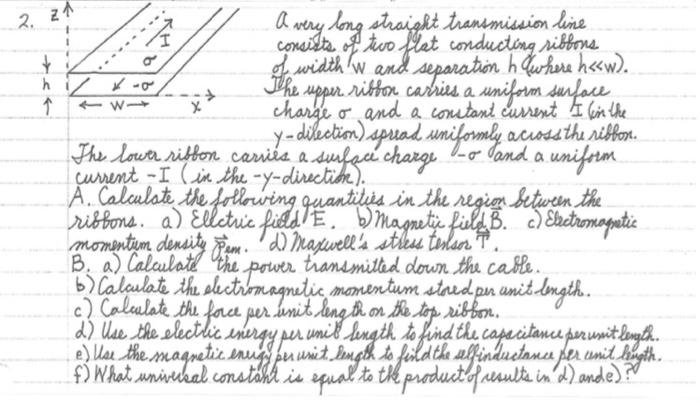 2. z A very long straight transmission line
I consists of two flat conducting ribbons
σ of width w and separation h (where h<<w).
h -σ The upper ribbon carries a uniform surface
w x charge σ and a constant current I (in the
y-direction) spread uniformly across the ribbon.
The lower ribbon carries a surface charge -σ and a uniform
current -I (in the -y-direction).
A. Calculate the following quantities in the region between the
ribbons. a) Electric field E. b) Magnetic field B. c) Electromagnetic
momentum density ℘em. d) Maxwell's stress tensor T.
B. a) Calculate the power transmitted down the cable.
b) Calculate the electromagnetic momentum stored per unit length.
c) Calculate the force per unit length on the top ribbon.
d) Use the electric energy per unit length to find the capacitance per unit length.
e) Use the magnetic energy per unit length to find the selfinductance per unit length.
f) What universal constant is equal to the product of results in d) and e)?